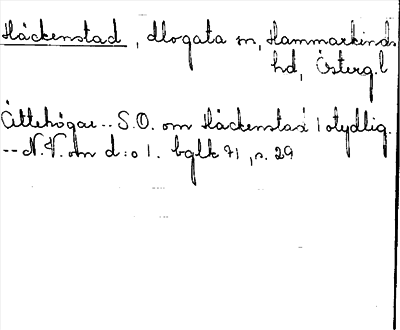 Häckenstad, Mogata sn, Hammarkinds
hd, Österg.l
Ättehögar -- S.O. om Häckenstad 1 otydlig.
-- N.V. om d:o 1. bglk 71, s. 29